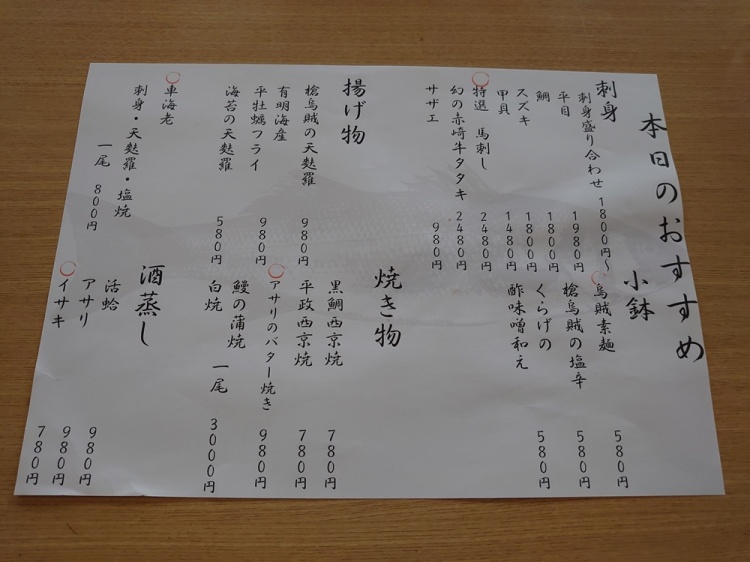 本日のおすすめ
刺身
刺身盛り合わせ 1800円～
平目 1980円
鯛 1800円
スズキ 1800円
甲貝 1480円
特選 馬刺し 2480円
幻の赤崎牛タタキ 2480円
サザエ 980円
小鉢
烏賊素麺 580円
槍烏賊の塩辛 580円
くらげの
酢味噌和え 580円
揚げ物
槍烏賊の天麩羅 980円
有明海産
平牡蠣フライ 980円
海苔の天麩羅 580円
車海老
刺身・天麩羅・塩焼
一尾 800円
焼き物
黒鯛西京焼 780円
平政西京焼 780円
アサリのバター焼き 980円
鰻の蒲焼
白焼 一尾 3000円
酒蒸し
活蛤 980円
アサリ 980円
イサキ 780円